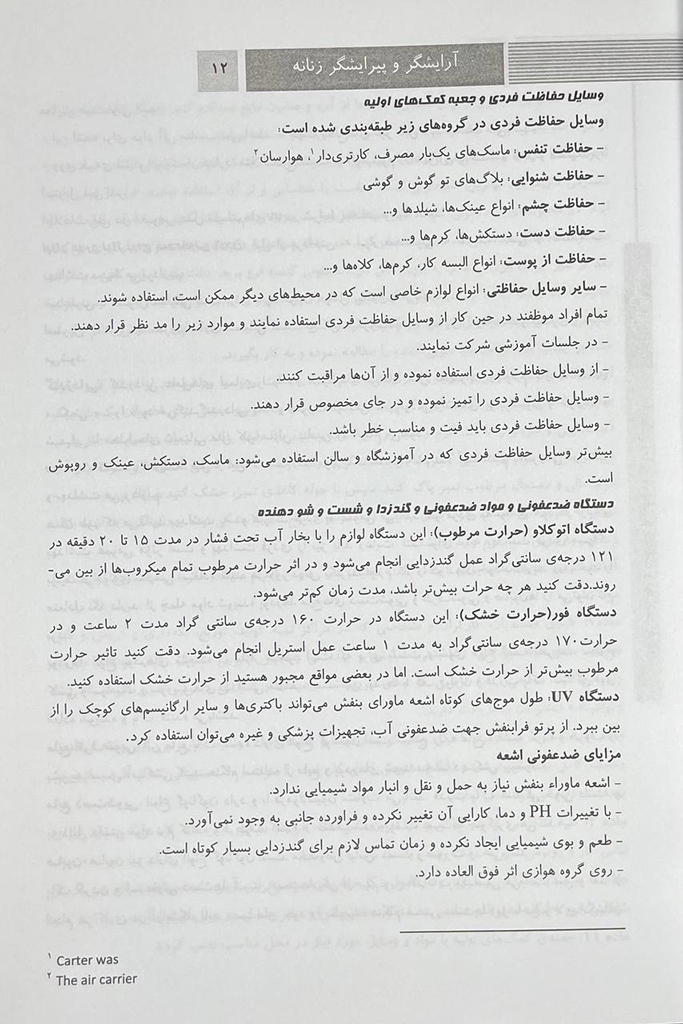 آرایشگر و پیرایشگر زنانه
۱۲
وسایل حفاظت فردی و جعبه کمک‌های اولیه
وسایل حفاظت فردی در گروه‌های زیر طبقه‌بندی شده است:
– حفاظت تنفس: ماسک‌های یک‌بار مصرف، کارتری‌دار۱، هوارسان۲
– حفاظت شنوایی: بلاگ‌های تو گوش و گوشی
– حفاظت چشم: انواع عینک‌ها، شیلدها و...
– حفاظت دست: دستکش‌ها، کرم‌ها و...
– حفاظت از پوست: انواع البسه کار، کرم‌ها، کلاه‌ها و...
– سایر وسایل حفاظتی: انواع لوازم خاصی است که در محیط‌های دیگر ممکن است، استفاده شوند.
تمام افراد موظفند در حین کار از وسایل حفاظت فردی استفاده نمایند و موارد زیر را مد نظر قرار دهند.
– در جلسات آموزشی شرکت نمایند.
– از وسایل حفاظت فردی استفاده نموده و از آن‌ها مراقبت کنند.
– وسایل حفاظت فردی را تمیز نموده و در جای مخصوص قرار دهند.
– وسایل حفاظت فردی باید فیت و مناسب خطر باشد.
بیش‌تر وسایل حفاظت فردی که در آموزشگاه و سالن استفاده می‌شود: ماسک، دستکش، عینک و روپوش
است.
دستگاه ضدعفونی و مواد ضدعفونی و گندزدا و شست و شو دهنده
دستگاه اتوکلاو (حرارت مرطوب): این دستگاه لوازم را با بخار آب تحت فشار در مدت ۱۵ تا ۲۰ دقیقه در
۱۲۱ درجه‌ی سانتی‌گراد عمل گندزدایی انجام می‌شود و در اثر حرارت مرطوب تمام میکروب‌ها از بین می-
روند.دقت کنید هر چه حرات بیش‌تر باشد، مدت زمان کم‌تر می‌شود.
دستگاه فور(حرارت خشک): این دستگاه در حرارت ۱۶۰ درجه‌ی سانتی گراد مدت ۲ ساعت و در
حرارت۱۷۰ درجه‌ی سانتی‌گراد به مدت ۱ ساعت عمل استریل انجام می‌شود. دقت کنید تاثیر حرارت
مرطوب بیش‌تر از حرارت خشک است. اما در بعضی مواقع مجبور هستید از حرارت خشک استفاده کنید.
دستگاه UV: طول موج‌های کوتاه اشعه ماورای بنفش می‌تواند باکتری‌ها و سایر ارگانیسم‌های کوچک را از
بین ببرد. از پرتو فرابنفش جهت ضدعفونی آب، تجهیزات پزشکی و غیره می‌توان استفاده کرد.
مزایای ضدعفونی اشعه
– اشعه ماوراء بنفش نیاز به حمل و نقل و انبار مواد شیمیایی ندارد.
– با تغییرات PH و دما، کارایی آن تغییر نکرده و فراورده جانبی به وجود نمی‌آورد.
– طعم و بوی شیمیایی ایجاد نکرده و زمان تماس لازم برای گندزدایی بسیار کوتاه است.
– روی گروه هوازی اثر فوق العاده دارد.
۱ Carter was
۲ The air carrier